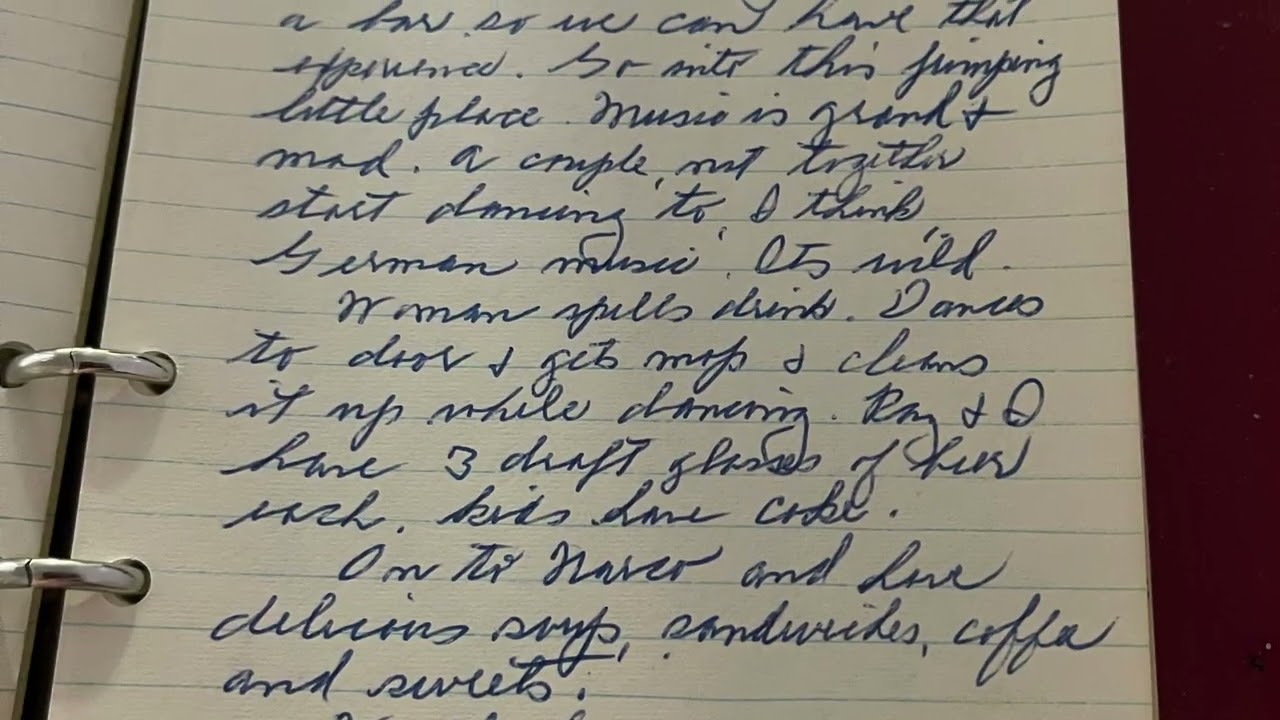 a bar so we can have that
experience. So into this jumping
little place. Music is grand &
mad. A couple, not together
start dancing to, I think,
German music. Its wild.
Woman spills drink. Dances
to door & gets mop & cleans
it up while dancing. Ray & I
have 3 draft glasses of beer
each. Kids have coke.
On to and have
delicious soup, sandwiches, coffee
and sweets.